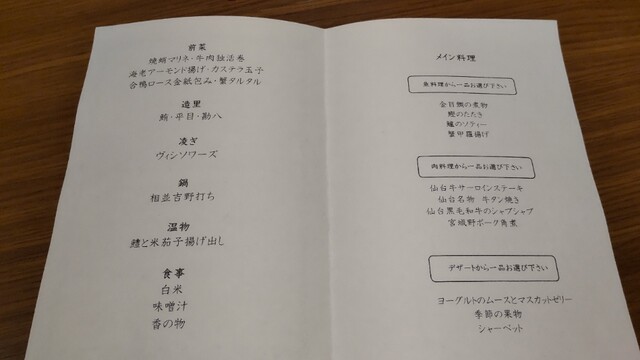 前菜
焼蛸マリネ・牛肉独活巻
海老アーモンド揚げ・カステラ玉子
合鴨ロース金紙包み・蟹タルタル
造里
鮪・平目・勘八
凌ぎ
ヴィシソワーズ
鍋
相並吉野打ち
温物
鱧と米茄子揚げ出し
食事
白米
味噌汁
香の物
メイン料理
魚料理から一品お選び下さい
金目鯛の煮物
鰹のたたき
鱸のソティー
蟹甲羅揚げ
肉料理から一品お選び下さい
仙台牛サーロインステーキ
仙台名物 牛タン焼き
仙台黒毛和牛のシャブシャブ
宮城野ポーク角煮
デザートから一品お選び下さい
ヨーグルトのムースとマスカットゼリー
季節の果物
シャーベット